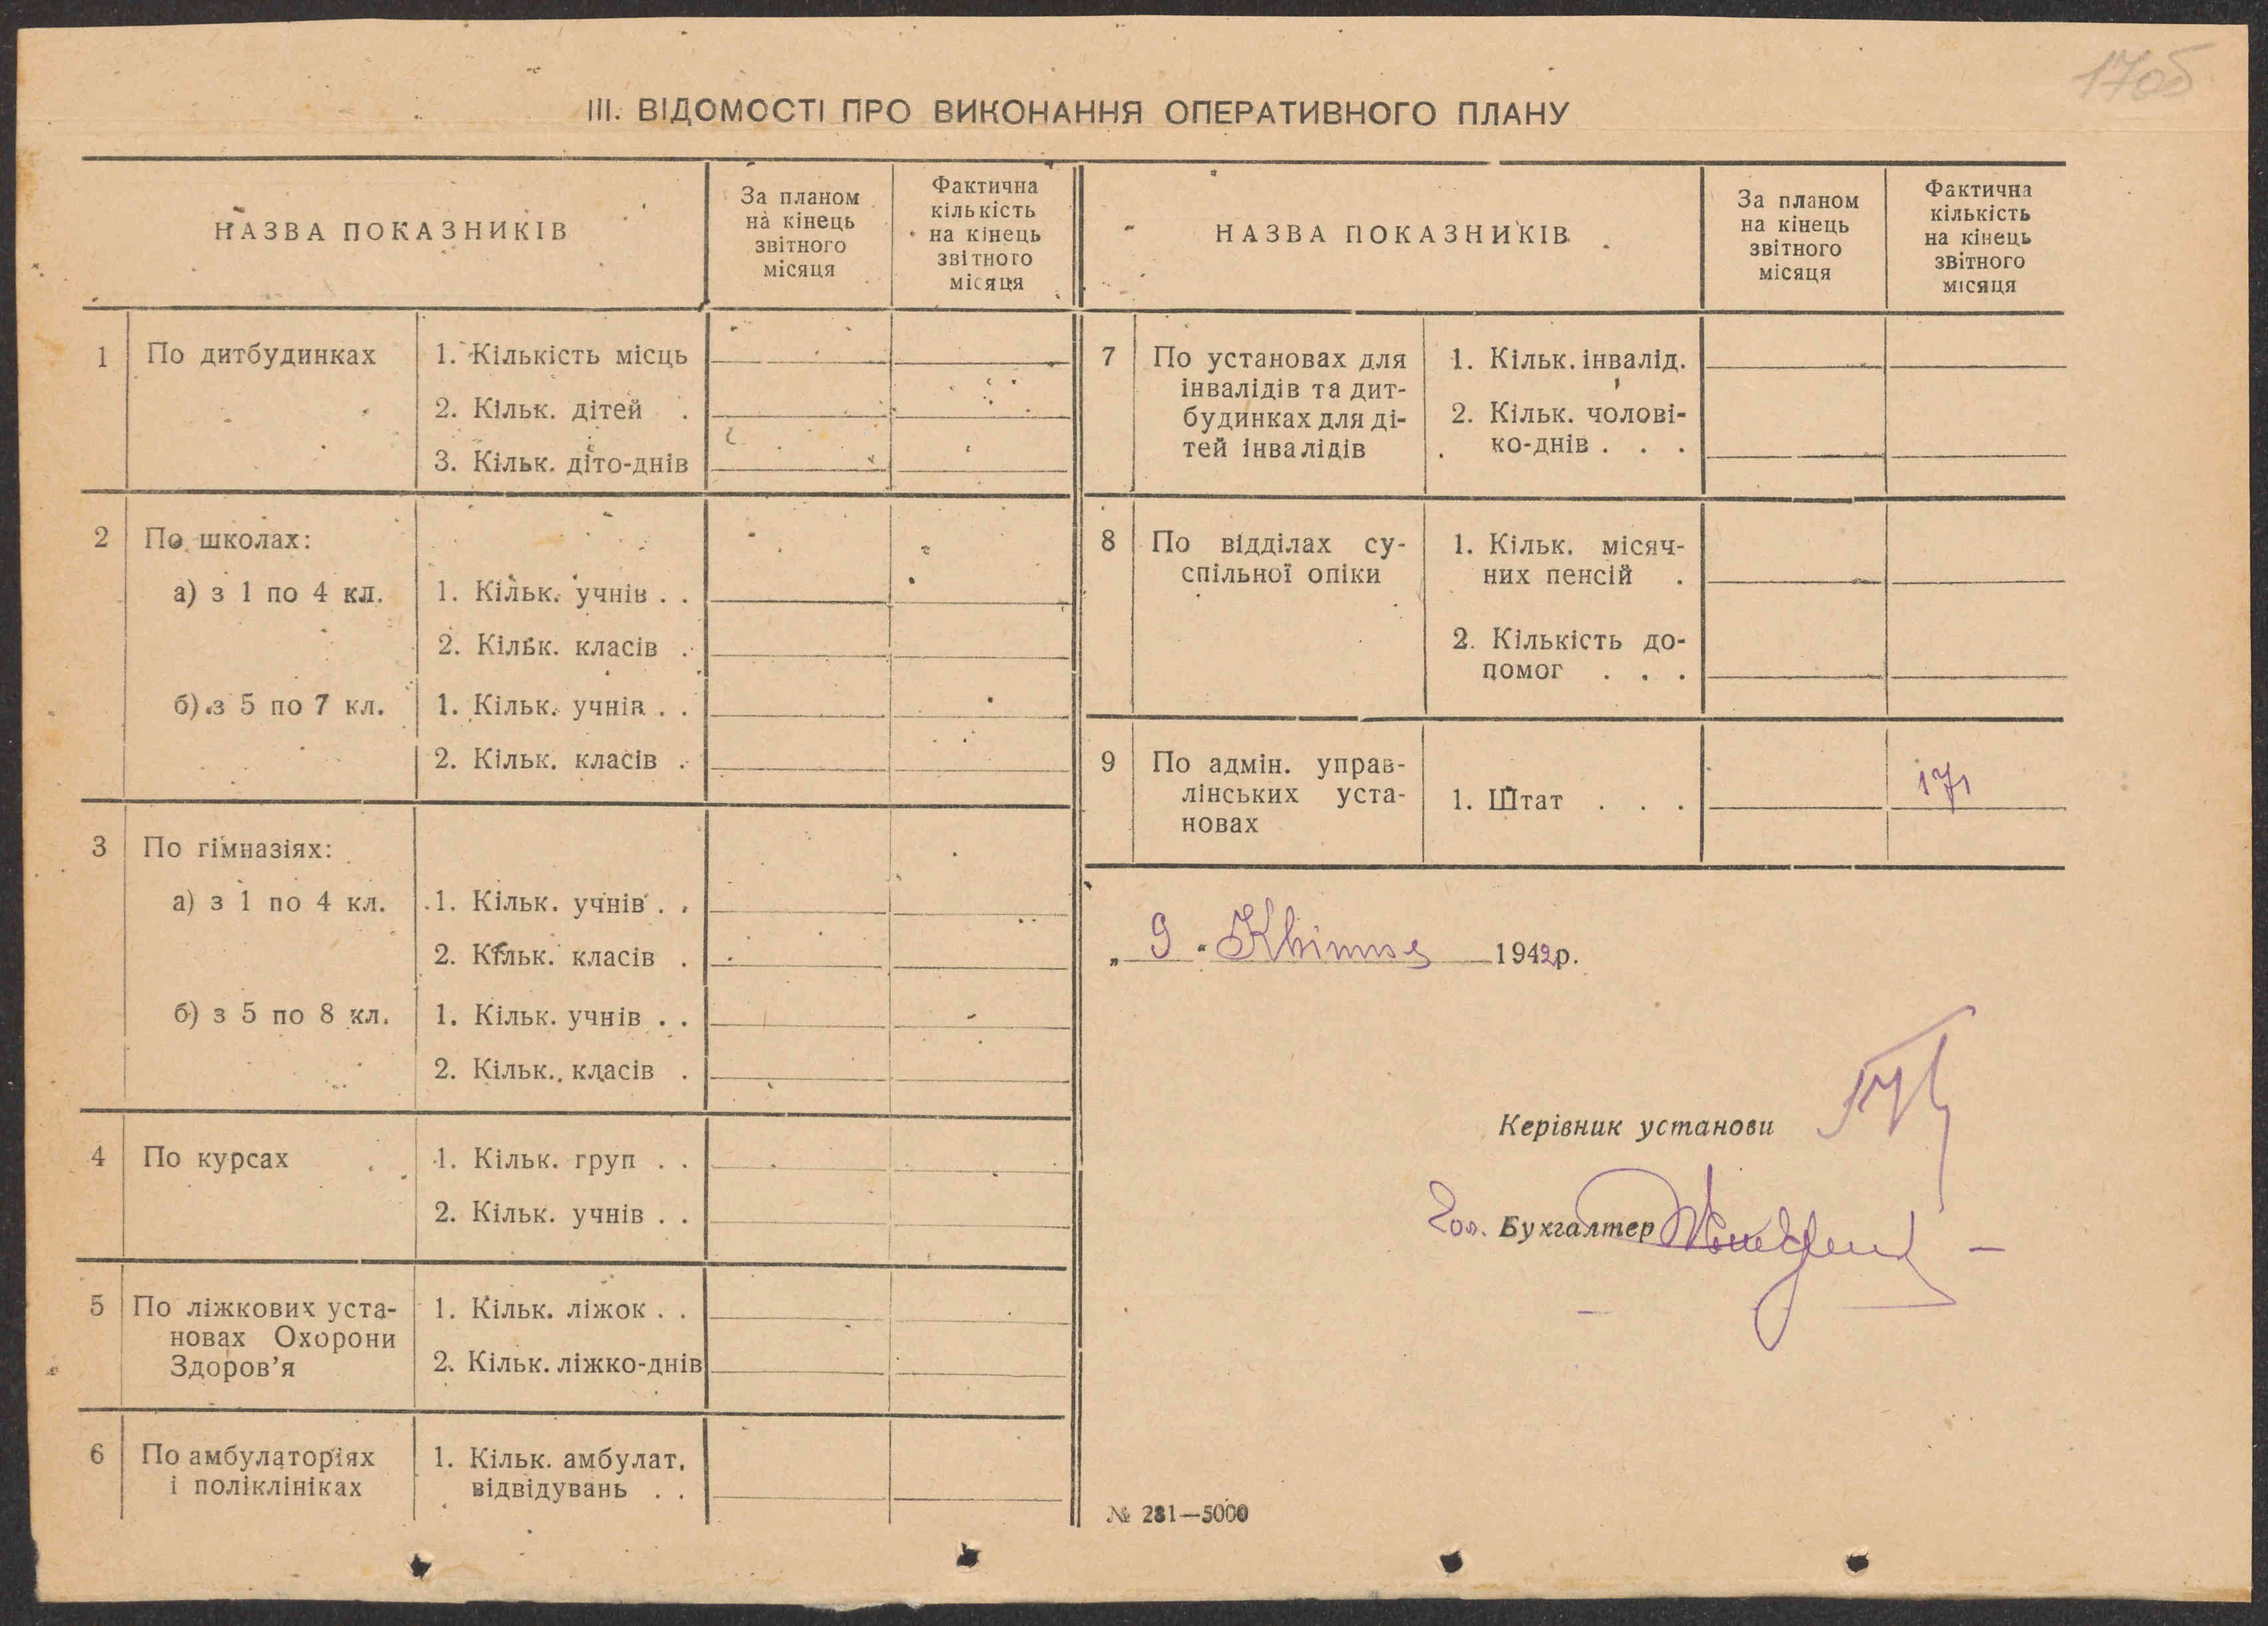 17об
III. ВІДОМОСТІ ПРО ВИКОНАННЯ ОПЕРАТИВНОГО ПЛАНУ
НАЗВА ПОКАЗНИКІВ
За планом
на кінець
звітного
місяця
Фактична
кількість
на кінець
звітного
місяця
1 По дитбудинках
1. Кількість місць
2. Кільк. дітей .
3. Кільк. діто-днів
2 По школах:
а) з 1 по 4 кл. 1. Кільк. учнів . .
2. Кільк. класів .
б) з 5 по 7 кл. 1. Кільк. учнів . .
2. Кільк. класів .
3 По гімназіях:
а) з 1 по 4 кл. 1. Кільк. учнів . .
2. Кільк. класів .
б) з 5 по 8 кл. 1. Кільк. учнів . .
2. Кільк. класів .
4 По курсах 1. Кільк. груп . .
2. Кільк. учнів . .
5 По ліжкових уста-
новах Охорони
Здоров’я
1. Кільк. ліжок . .
2. Кільк. ліжко-днів
6 По амбулаторіях
і поліклініках
1. Кільк. амбулат.
відвідувань . .
НАЗВА ПОКАЗНИКІВ
За планом
на кінець
звітного
місяця
Фактична
кількість
на кінець
звітного
місяця
7 По установах для
інвалідів та дит-
будинках для ді-
тей інвалідів
1. Кільк. інвалід.
2. Кільк. чолові-
ко-днів . . .
8 По відділах су-
спільної опіки
1. Кільк. місяч-
них пенсій .
2. Кількість до-
помог . . .
9 По адмін. управ-
лінських уста-
новах
1. Штат . . . 171
„ 9 “ Квітня 1942р.
Керівник установи
Гол. Бухгалтер
№ 281—5000